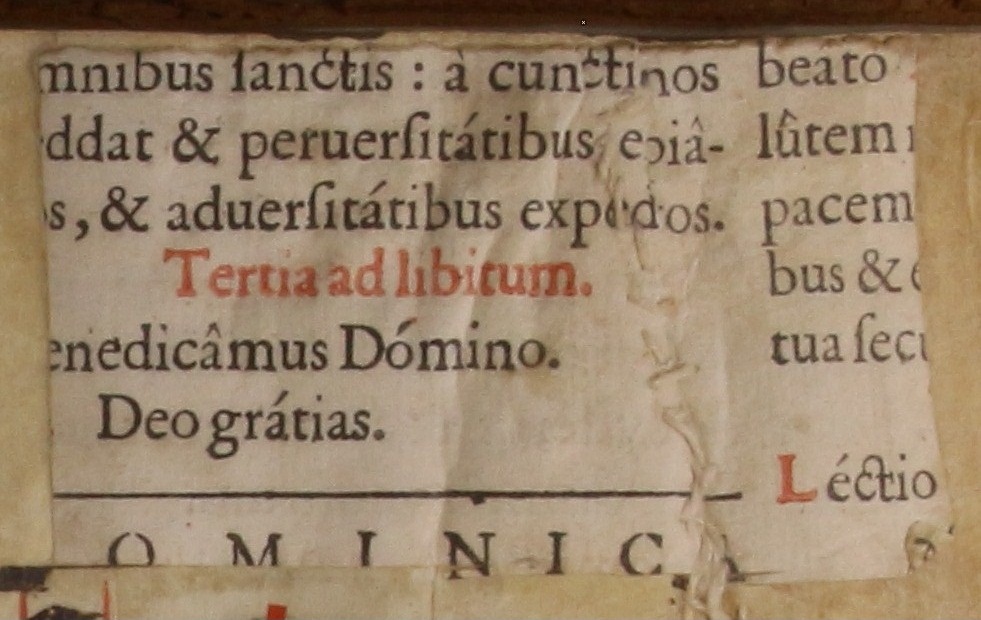 mnibus ſanctis : à cunctinos
ddat & peruerſitátibus
s, & aduerſitátibus
Tertia ad libitum.
enedicâmus Dómino.
Deo grátias.
O M I N I C A
beáto
lûtem
pacem
bus &
tua ſecu
Léctio